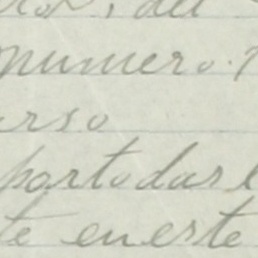 del
numero.
urso
portodas l
te en este